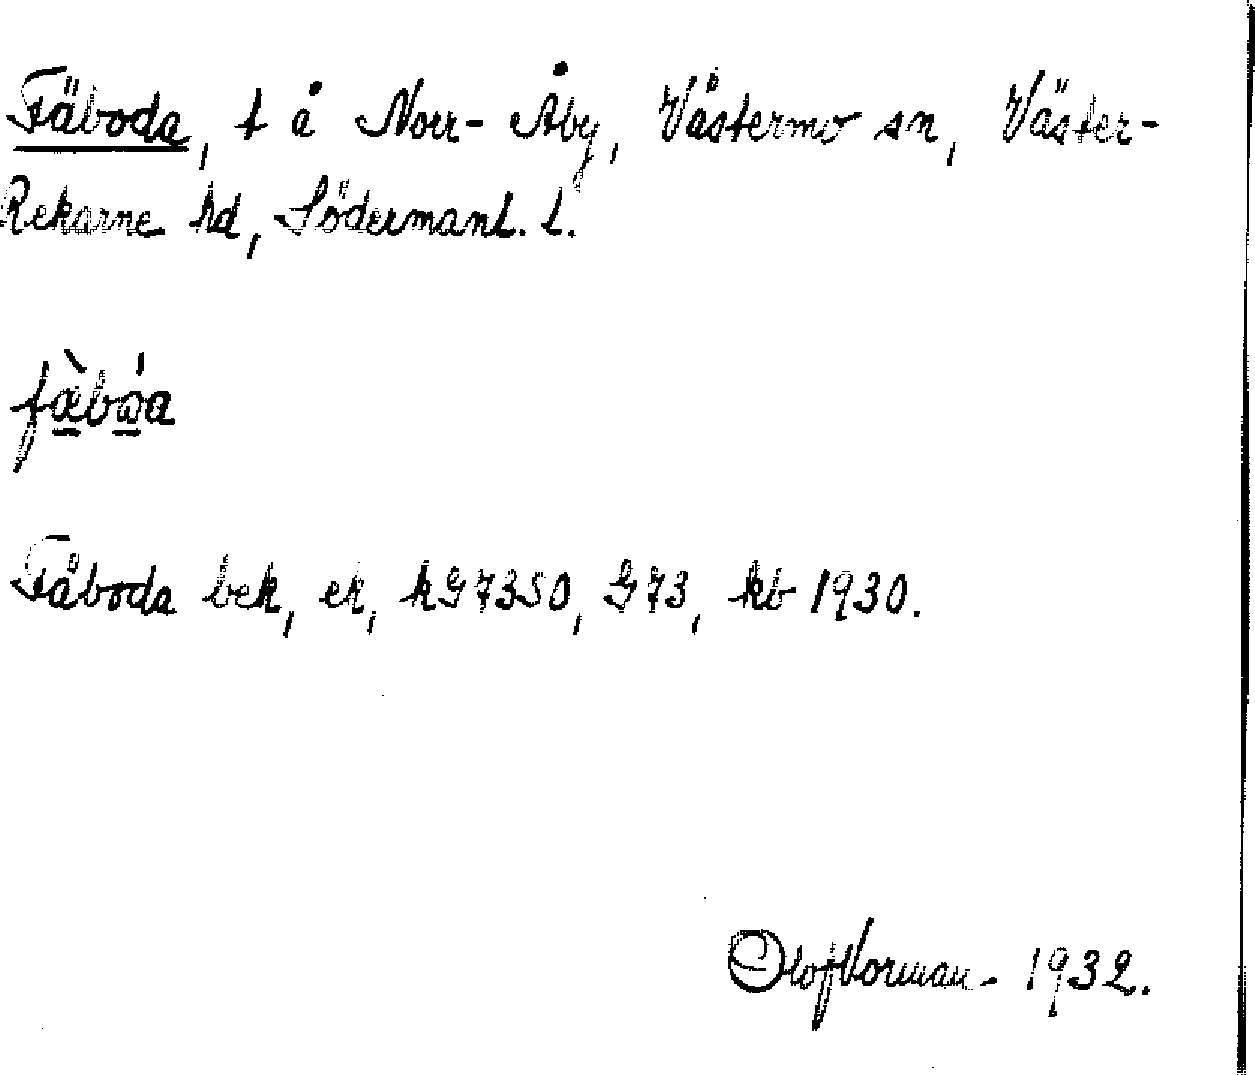 Fäboda, t å Norr-Åby, Västermo sn, Väster-
Rekarne hd, Södermanl. l.
fæ̀bɷ́a
Fäboda bek, ek, kG7350, G73, kb 1930.
Olof Norman - 1932.